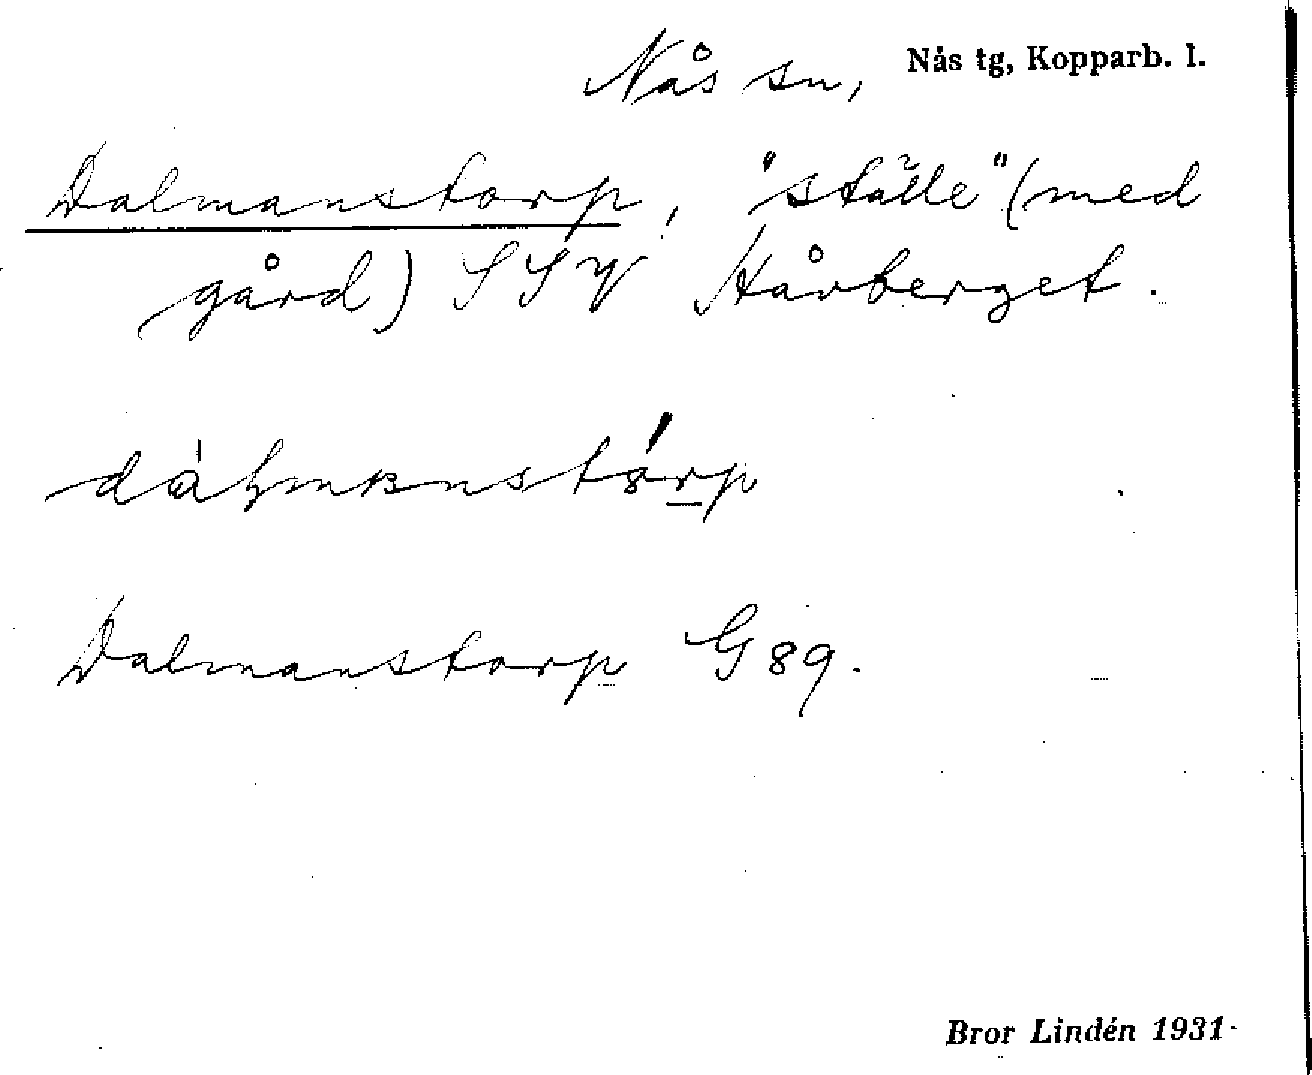 Nås sn, Nås tg, Kopparb. l.
Dalmanstorp, "ställe" (med
gård) SSV Hårberget.
Dalmanstorp G 89.
Bror Lindén 1931